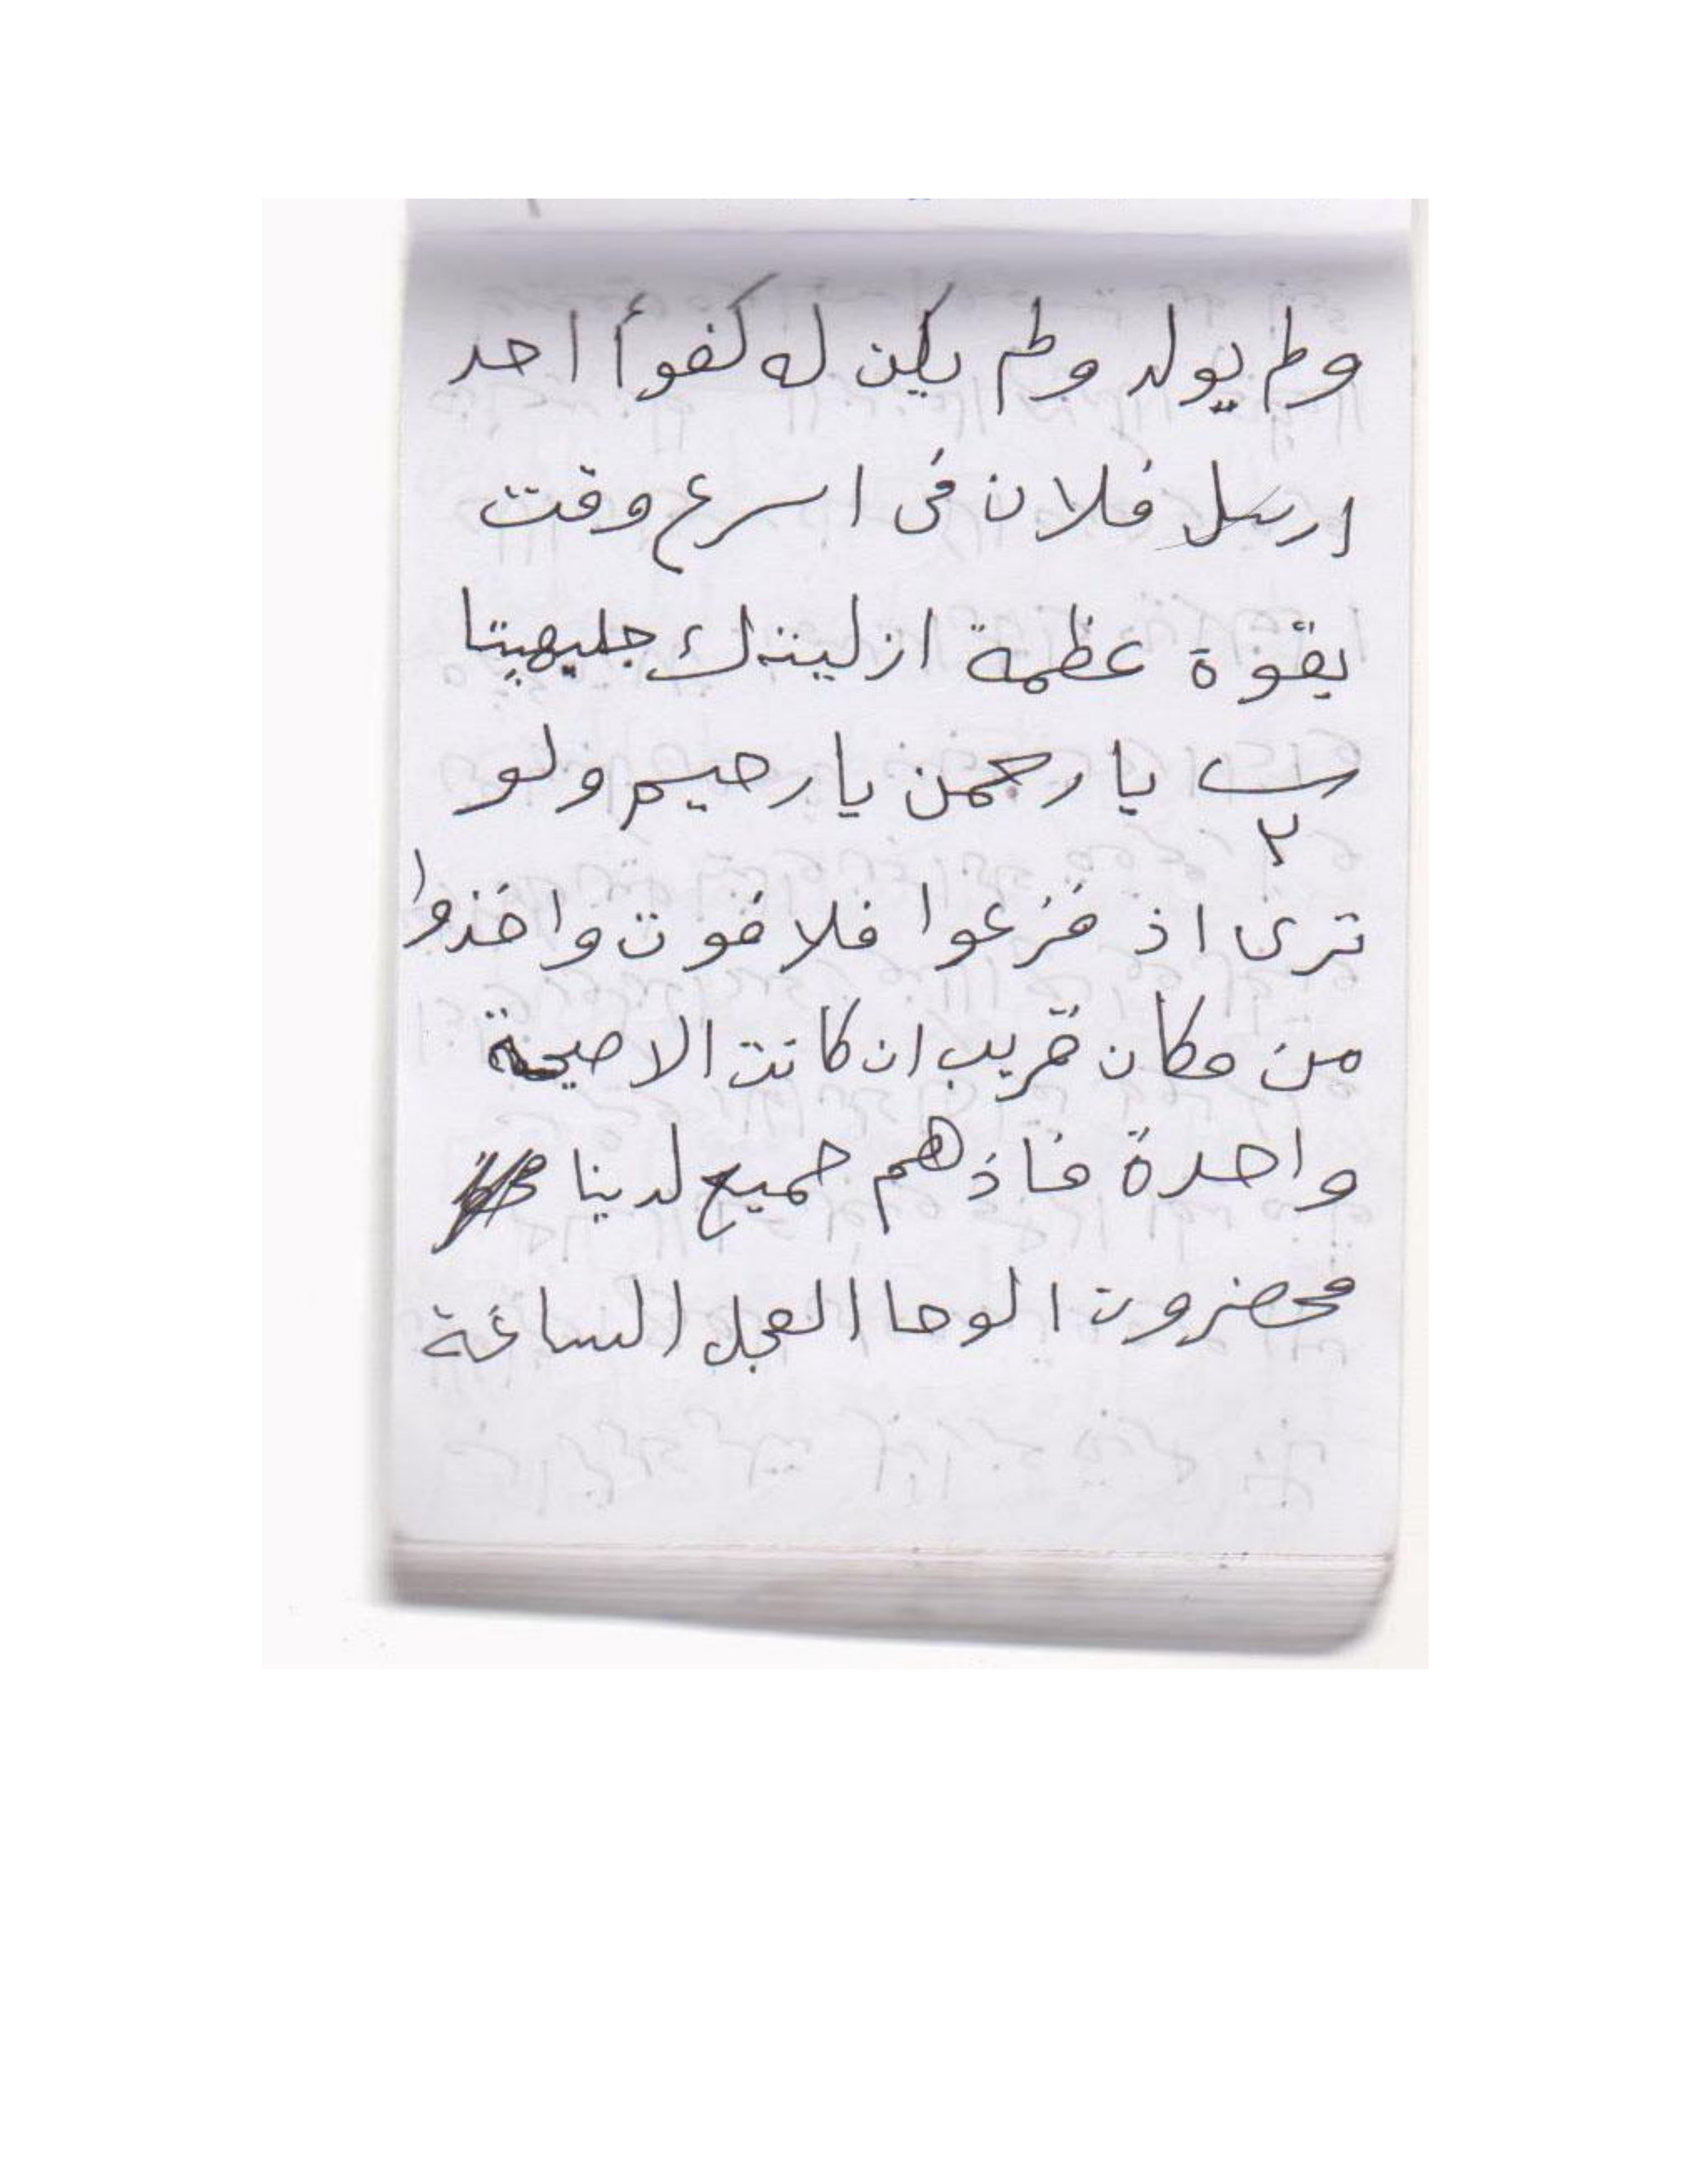 ولم يولد ولم يكن له كفوأ احد
ارسل فلان فى اسرع وقت
بقوة عظمة ازليتك جليهيتا
يا رحمن يا رحيم ولو
٢
ترى اذ فزعوا فلا فوت واخذوا
من مكان قريب ان كانت الا صيحة
واحدة فاذ هم جميع لدينا
محضرون الوحا العجل الساعة